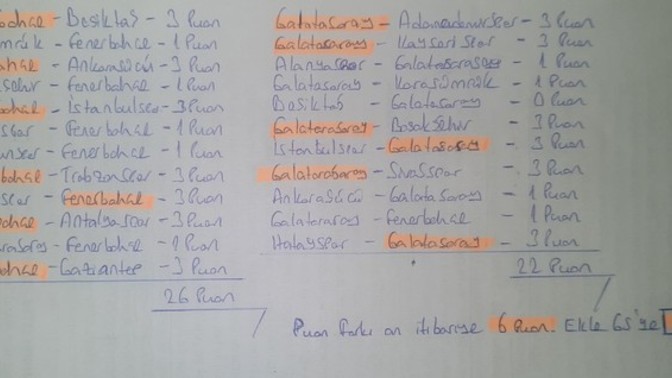 bahçe - Beşiktaş - 3 Puan
mrük - Fenerbahçe - 1 Puan
bahçe - Ankaragücü - 3 Puan
şehir - Fenerbahçe - 1 Puan
bahçe - İstanbulspor - 3 Puan
spor - Fenerbahçe - 1 Puan
nspor - Fenerbahçe - 1 Puan
bahçe - Trabzonspor - 3 Puan
spor - Fenerbahçe - 3 Puan
bahçe - Antalyaspor - 3 Puan
tasaray - Fenerbahçe - 1 Puan
bahçe - Gaziantep - 3 Puan
26 Puan
Galatasaray - Adanademirspor - 3 Puan
Galatasaray - Kayserispor - 3 Puan
Alanyaspor - Galatasaray - 1 Puan
Galatasaray - Karagümrük - 1 Puan
Beşiktaş - Galatasaray - 0 Puan
Galatasaray - Başakşehir - 3 Puan
İstanbulspor - Galatasaray - 3 Puan
Galatasaray - Sivasspor - 3 Puan
Ankaragücü - Galatasaray - 1 Puan
Galatasaray - Fenerbahçe - 1 Puan
Hatayspor - Galatasaray - 3 Puan
22 Puan
Puan farkı an itibariyle 6 Puan. Ekle GS'ye